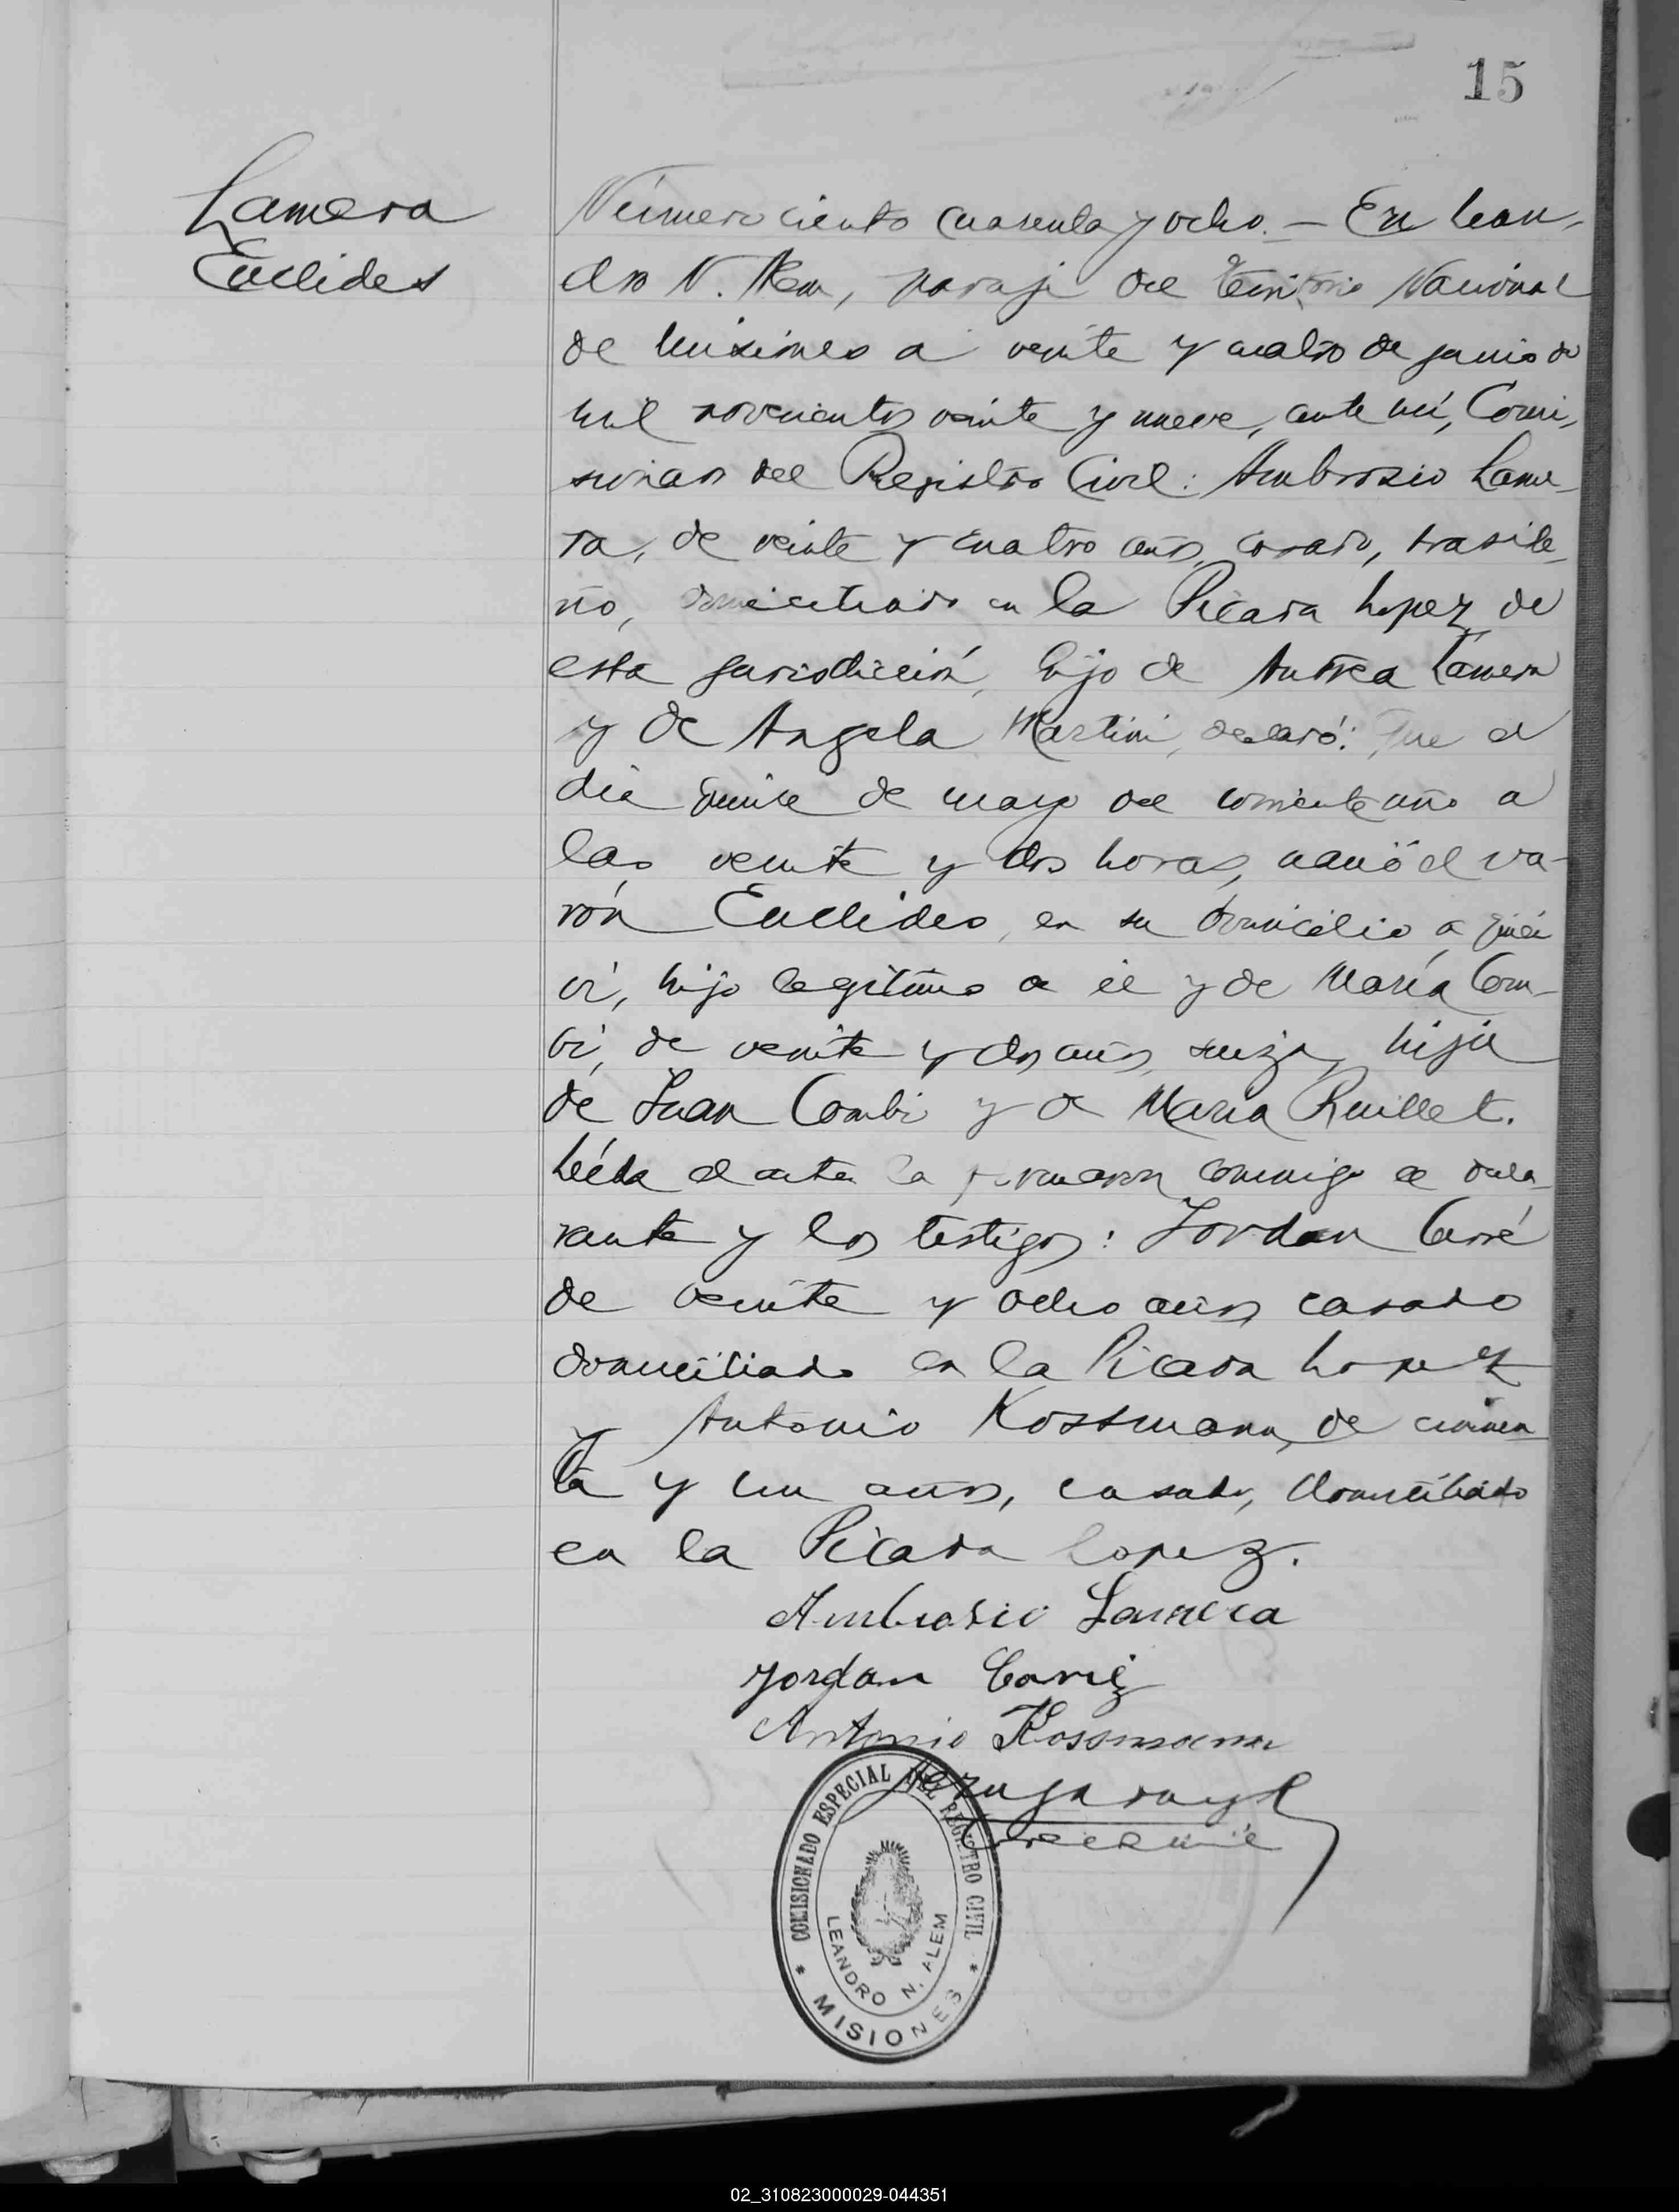 15
Lamera
Euclides
Número ciento cuarenta y ocho. — En Lean-
dro N. Alem, paraje del Territorio Nacional
de Misiones a veinte y cuatro de junio de
mil novecientos veinte y nueve, ante mí, Comi-
sionado del Registro Civil: Ambrosio Lame-
ra, de veinte y cuatro años, casado, brasile-
ño, domiciliado en la Picada Lopez de
esta jurisdicción, hijo de Andrea Lamera
y de Angela Martini, declaró: Que el
dia quince de mayo del corriente año a
las veinte y dos horas, nació el va-
rón Euclides, en su domicilio a quien
vi, hijo legítimo de él y de María Com-
bi, de veinte y dos años, suiza, hija
de Juan Combi y de Maria Ruillet.
Leída el acta la firmaron conmigo el decla-
rante y los testigos: Jordan Carré
de veinte y ocho años casado
domiciliado en la Picada Lopez
y Antonio Kossmann, de cincuen-
ta y un años, casado, domiciliado
en la Picada Lopez.
Ambrosio Lamera
Jordan
Antonio Kossmann
COMISIONADO ESPECIAL DEL REGISTRO CIVIL
LEANDRO N. ALEM
* MISIONES *
02_310823000029-044351